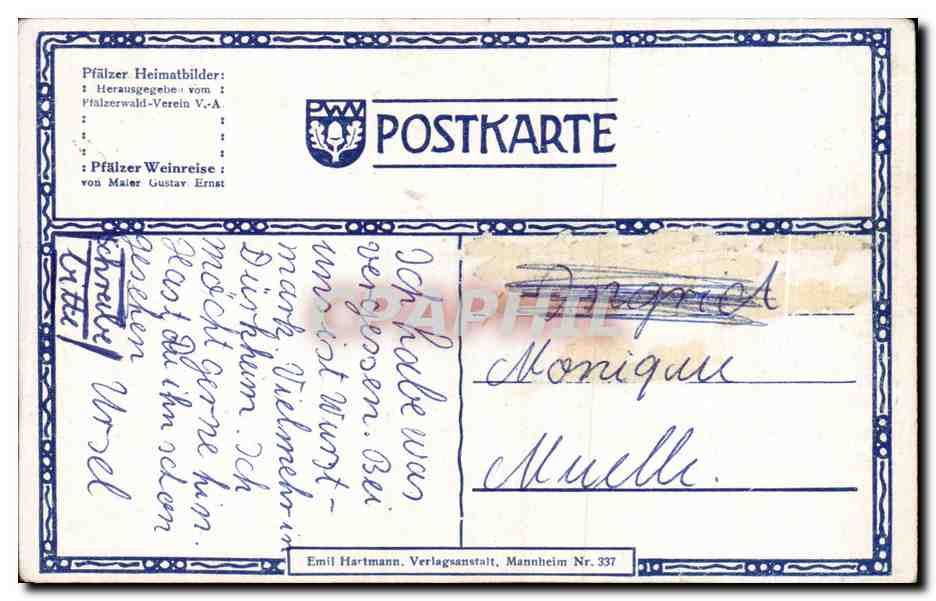 Pfälzer Heimatbilder:
: Herausgegeben vom :
Pfälzerwald-Verein V.-A.
: Pfälzer Weinreise :
von Maler Gustav Ernst
PWV
POSTKARTE
Ich habe was
vergessen. Bei
uns ist Wurst-
markt. Vielmehr in
Dürkheim. Ich
möcht gerne hin.
Hast Du ihn schon
gesehen
Ursel
schreibe
bitte!
Ingrid
Monique
Muelle.
CPAPHIL
Emil Hartmann, Verlagsanstalt, Mannheim Nr. 337